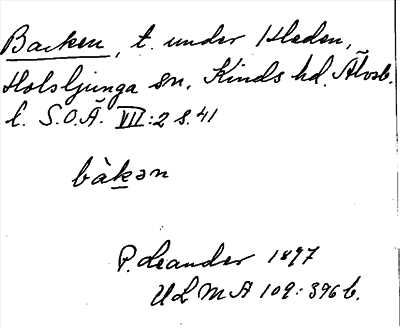 Backen, t. under Heden,
Holsljunga sn, Kinds hd. Älvsb.
l. S.O.Ä. VII:2 s. 41
bàkən
P. Leander 1897
ULMA 109:396 b.